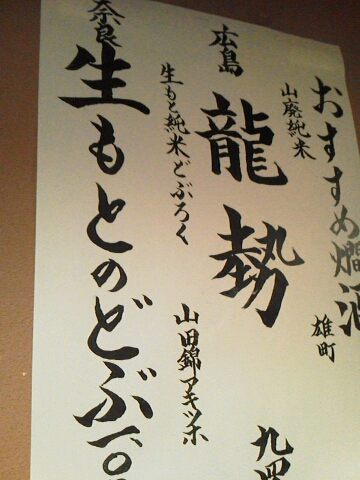 おすすめ燗酒
山廃純米 雄町
広島 龍勢 九四
生もと純米どぶろく 山田錦アキツホ
奈良 生もとのどぶ 一〇